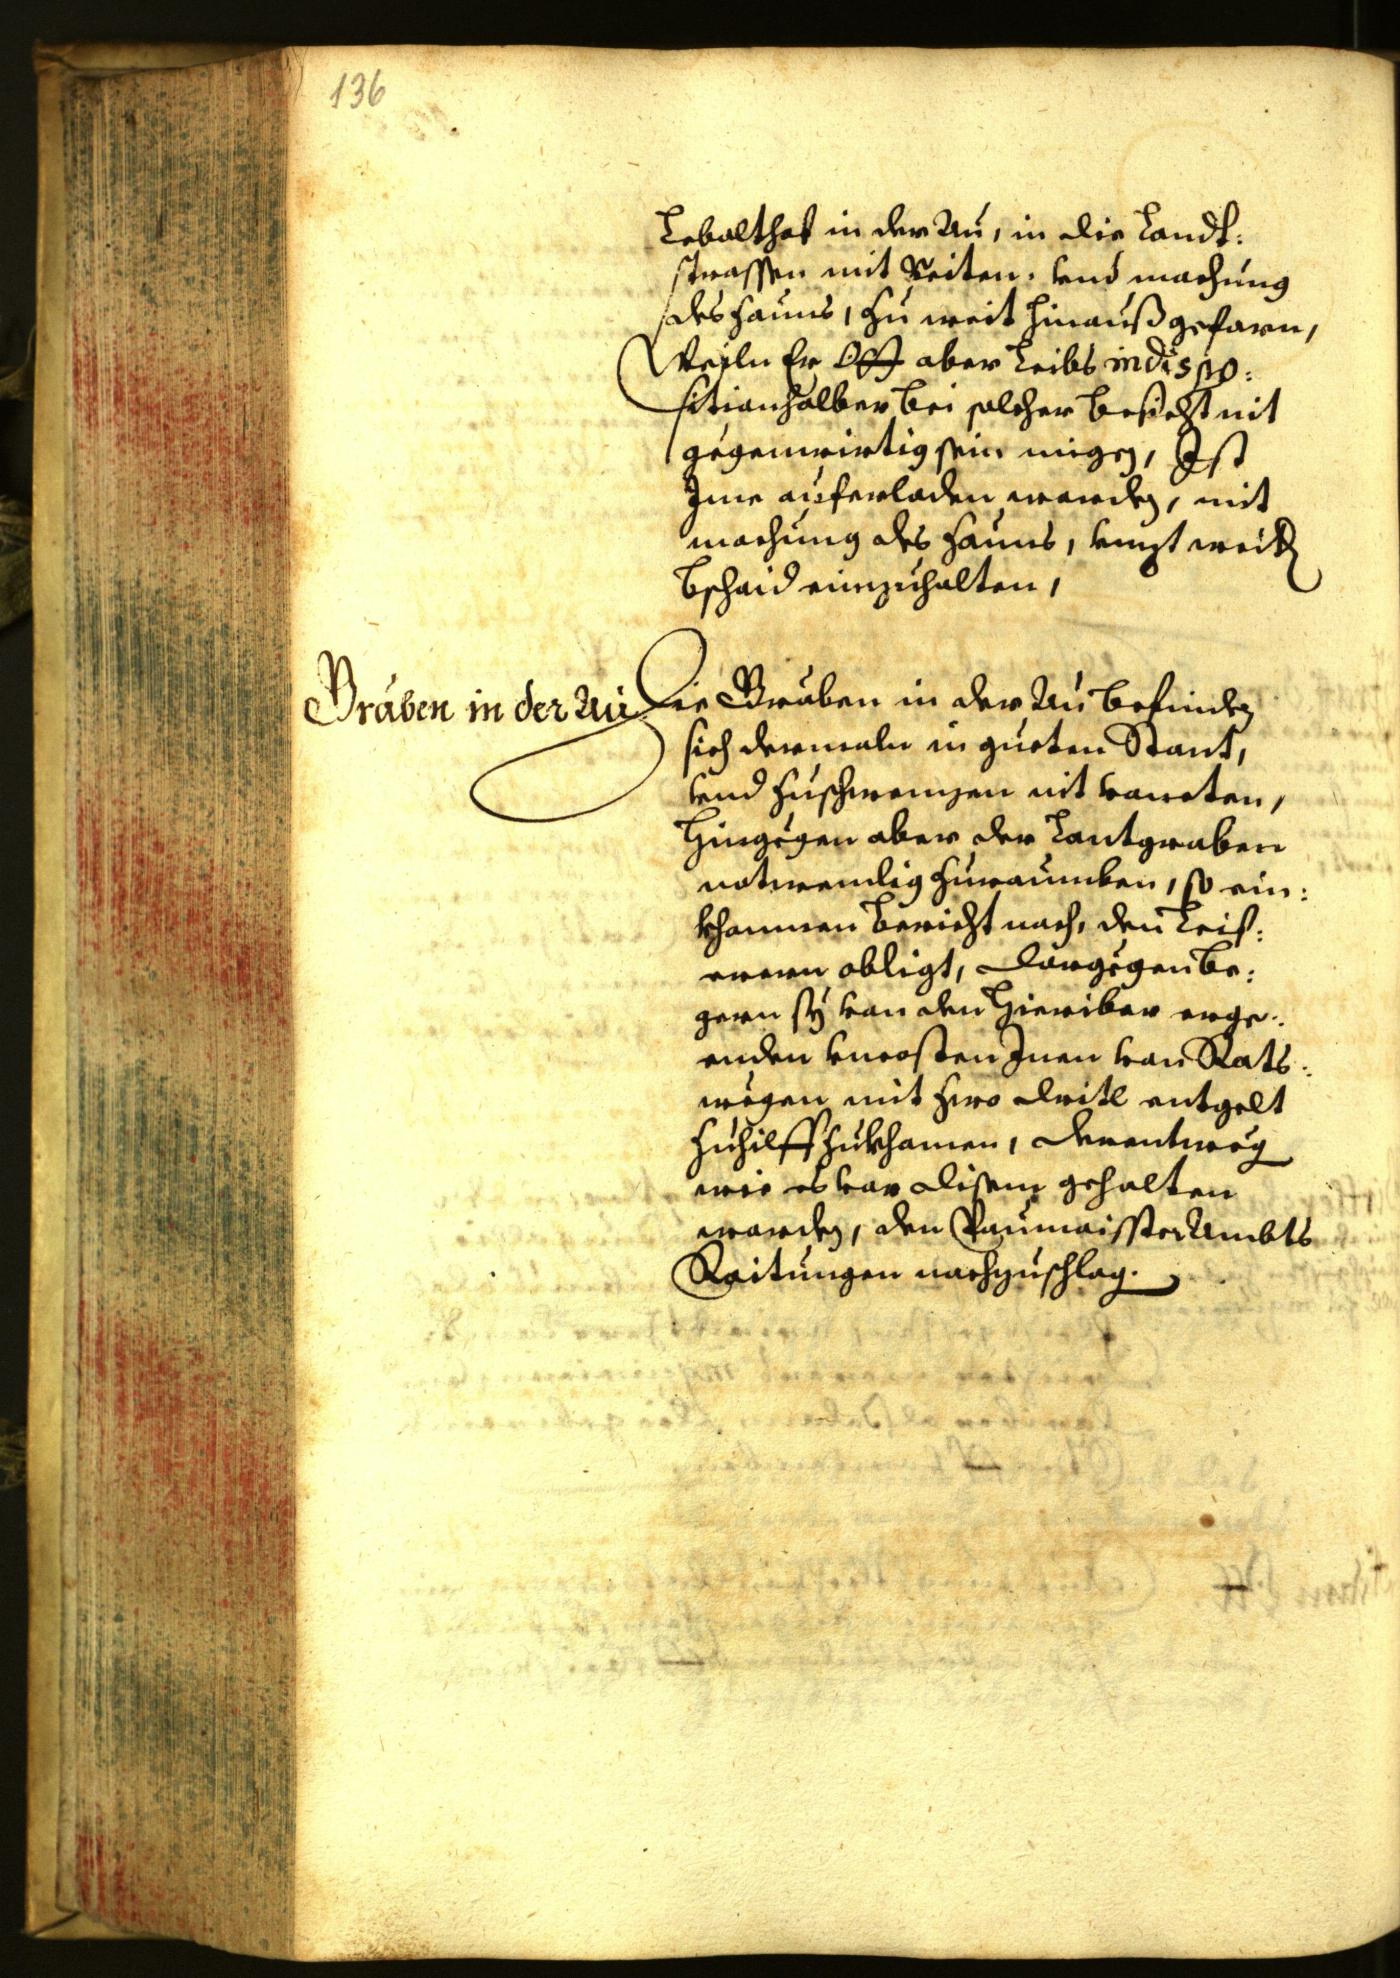 136
Lebalthof in der Au, in die Landt:
strassen mit Reiten. vnd machung
des Zauns, zu weit hinauß gefarn,
Weiln Er Ott aber Leibs indispo:
sitionhalber bei solcher besicht nit
gegenwirtig sein migen, Ist
Ime auferladen worden, mit
machung des Zauns, vnzt weitter
bschaid einzuhalten,
Gräben in der Au
Die Gräben in der Au befinden
sich dermaln in gueten Stant,
vnd zuschwenzen nit vonneten,
Hingegen aber der Lantgraben
notwendig zuraumben, so ein:
khomnen bericht nach, den Leif:
erern obligt, Dargegen be:
gern sy von den hieriber erge:
enden vncosten Inen von Rats:
wegen mit zwo dritl entgelt
zuhilff zukhomen, Derentweg
wie es vor disem gehalten
worden, den Paumaisster Ambts
Raitungen nachzuschlag.